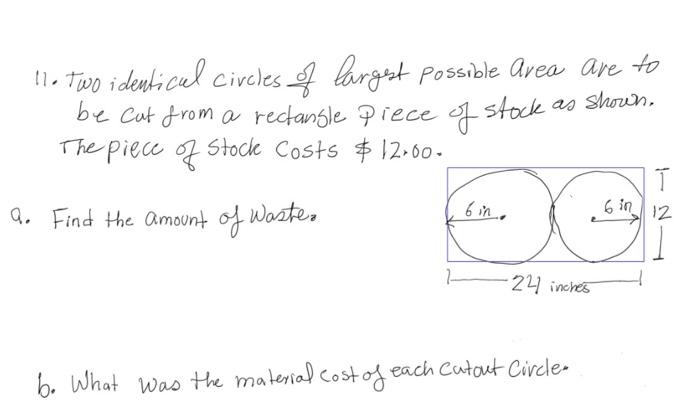 11. Two identical circles of largest possible area are to
be cut from a rectangle piece of stock as shown.
The piece of stock costs $12.00.
a. Find the amount of waste.
6 in.
6 in
12
24 inches
b. What was the material cost of each cutout circle.